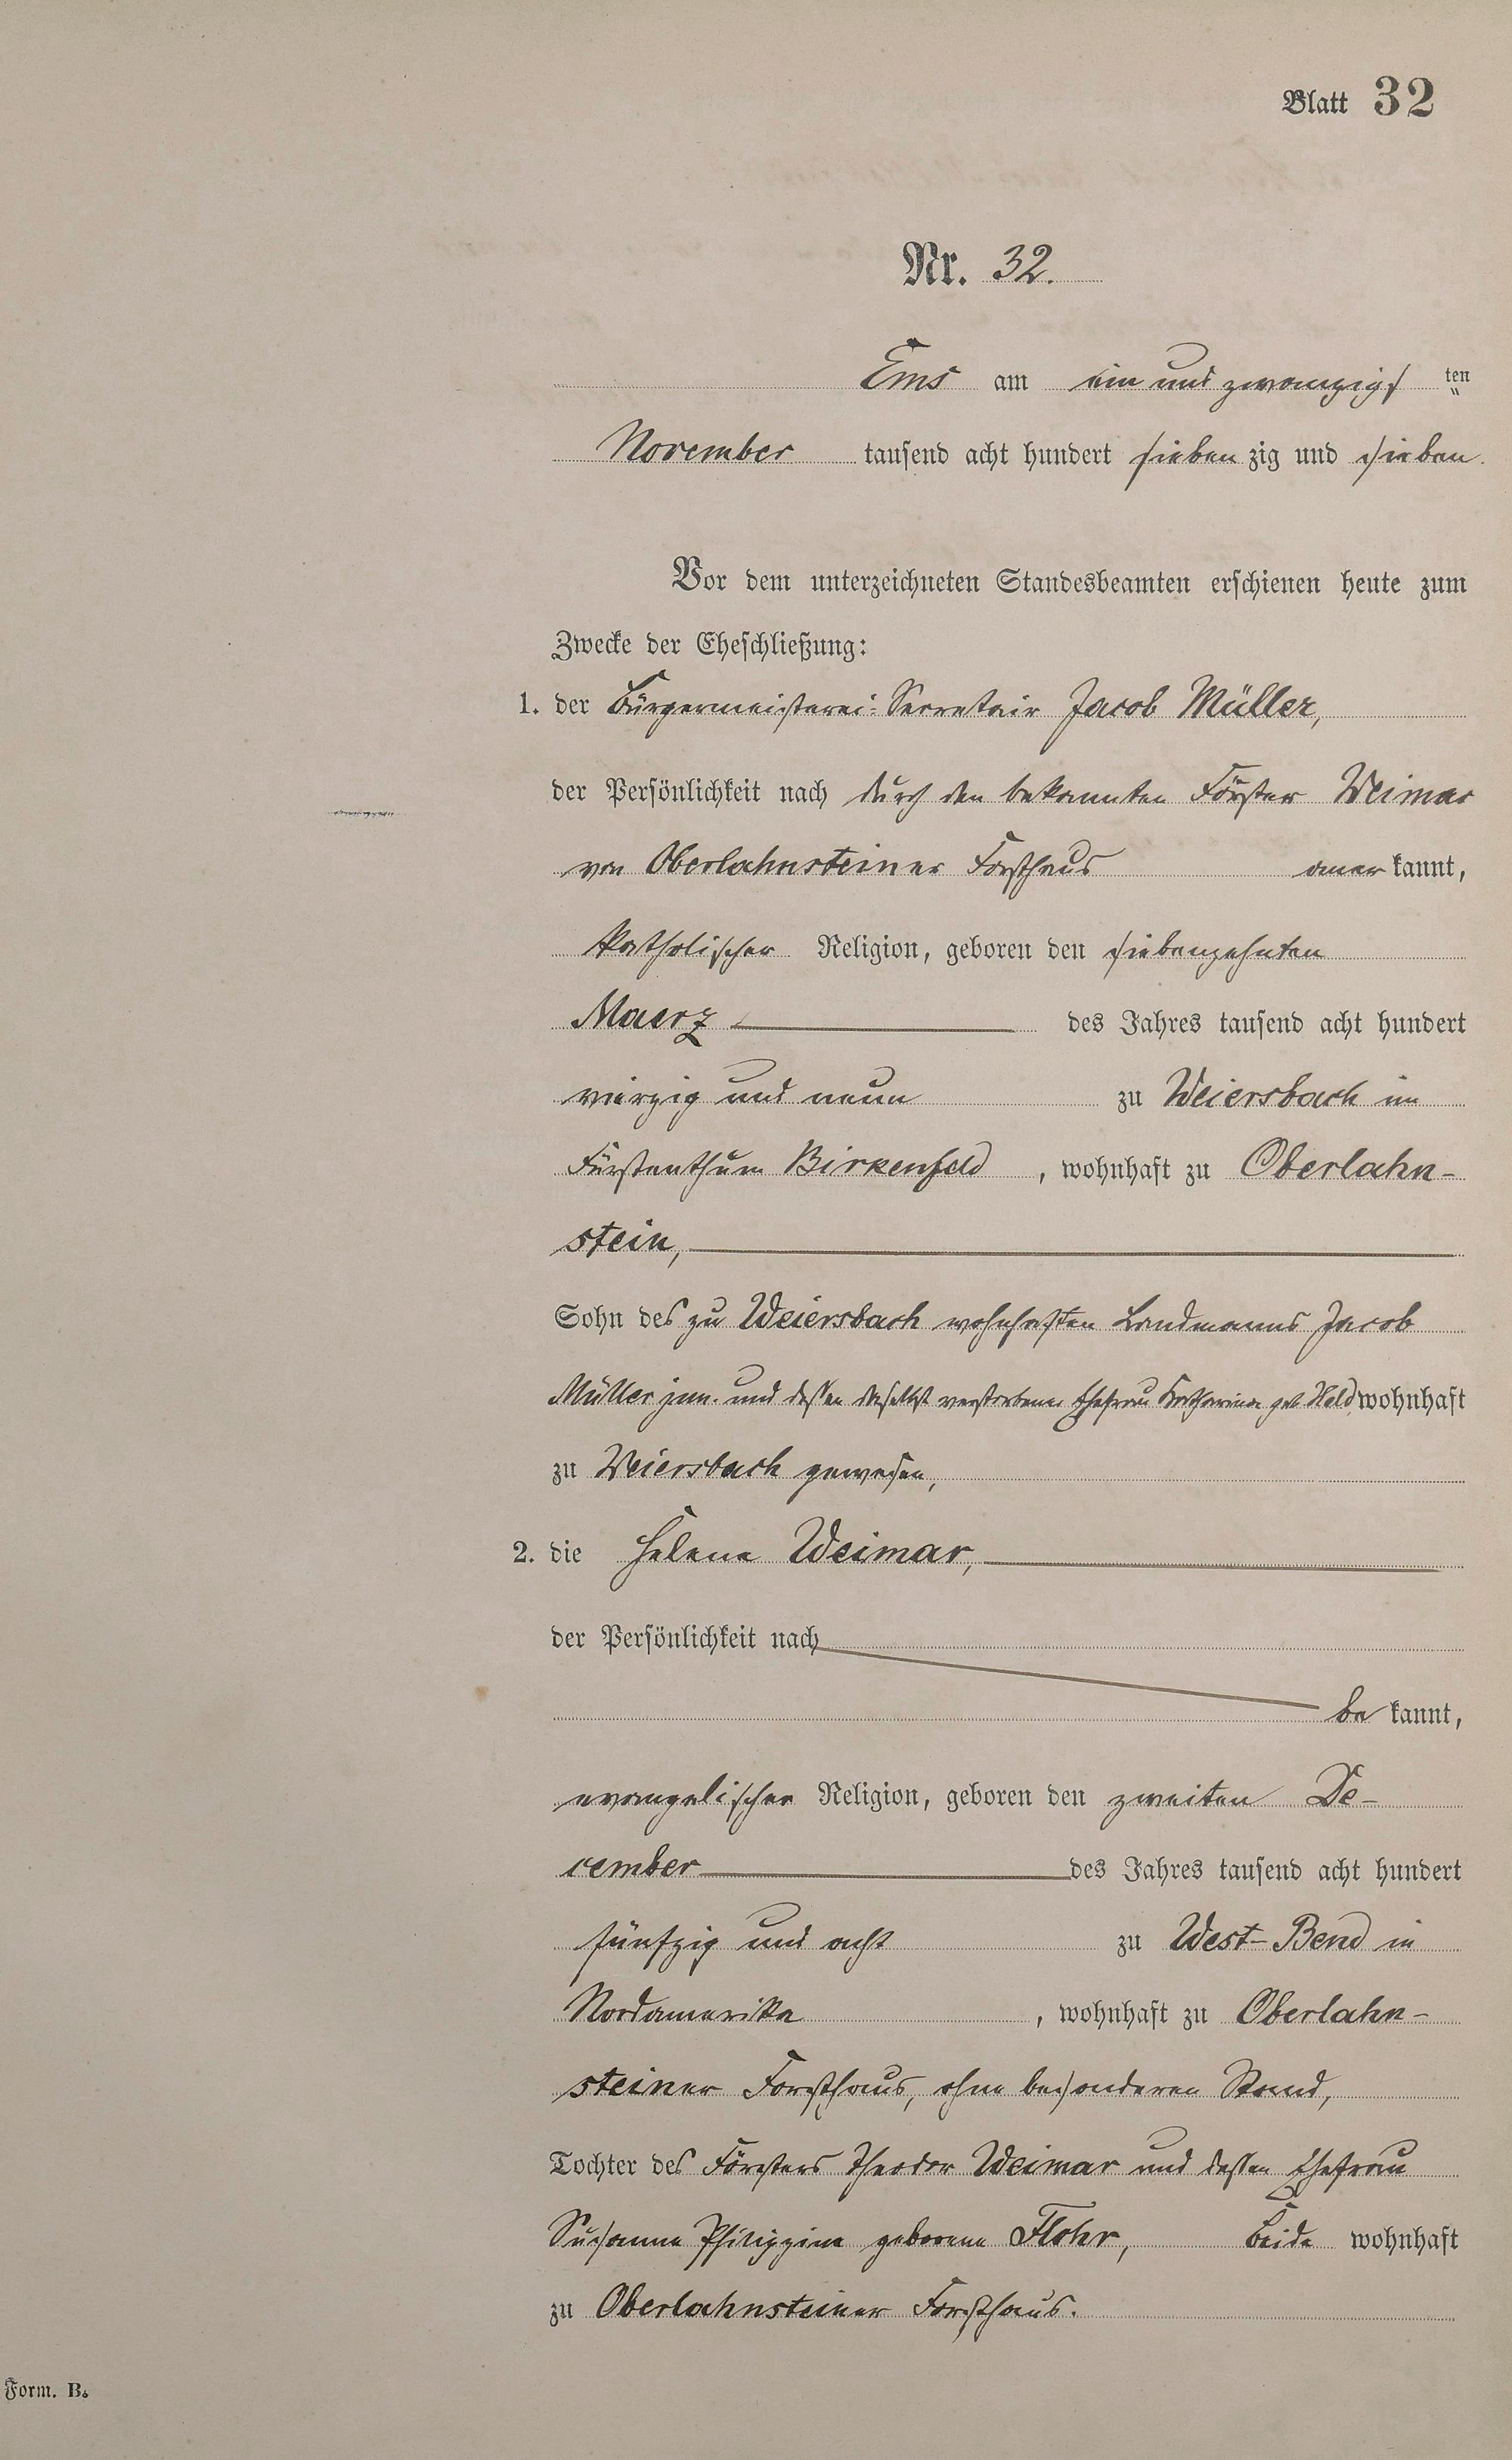 Blatt 32
Nr. 32.
Ems am ein und zwanzigsten
November tausend acht hundert sieben zig und sieben.
Vor dem unterzeichneten Standesbeamten erschienen heute zum
Zwecke der Eheschließung:
1. der Bürgermeisterei-Secretair Jacob Müller,
der Persönlichkeit nach durch den bekannten Förster Weimar
von Oberlahnsteiner Forsthaus aner kannt,
katholischer Religion, geboren den siebenzehnten
Maerz des Jahres tausend acht hundert
vierzig und neun zu Weiersbach im
Fürstenthum Birkenfeld, wohnhaft zu Oberlahn-
stein,
Sohn des zu Weiersbach wohnhaften Landmanns Jacob
Müller jun. und dessen daselbst verstorbener Ehefrau Katharina geb. Held wohnhaft
zu Weiersbach gewesen,
2. die Helene Weimar,
der Persönlichkeit nach
be kannt,
evangelischer Religion, geboren den zweiten De-
cember des Jahres tausend acht hundert
fünfzig und acht zu West-Bend in
Nordamerika, wohnhaft zu Oberlahn-
steiner Forsthaus, ohne besonderen Stand,
Tochter des Försters Theodor Weimar und dessen Ehefrau
Susanna Philippine geborene Flohr, Beide wohnhaft
zu Oberlahnsteiner Forsthaus.
Form. B.